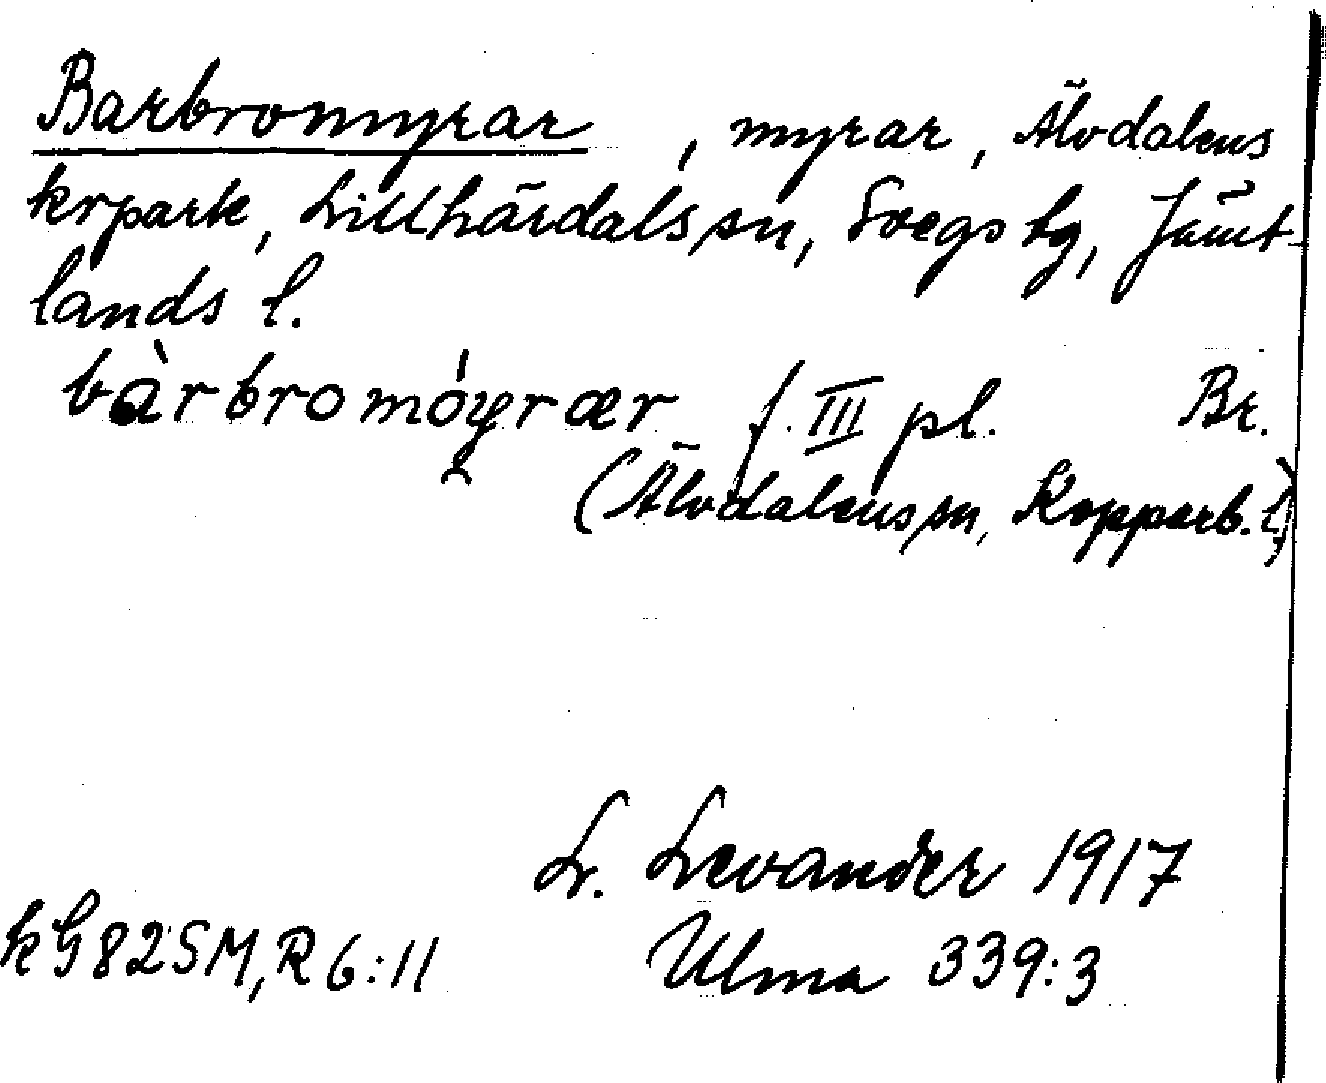 Barbromyrar, myrar, Älvdalens
krpark, Lillhärdals sn, Svegs tg, Jämt-
lands l.
bàrbromóyrær f. III pl. Br.
(Älvdalens sn, Kopparb. l.)
L. Levander 1917
kG82SM, R6:11 Ulma 339:3